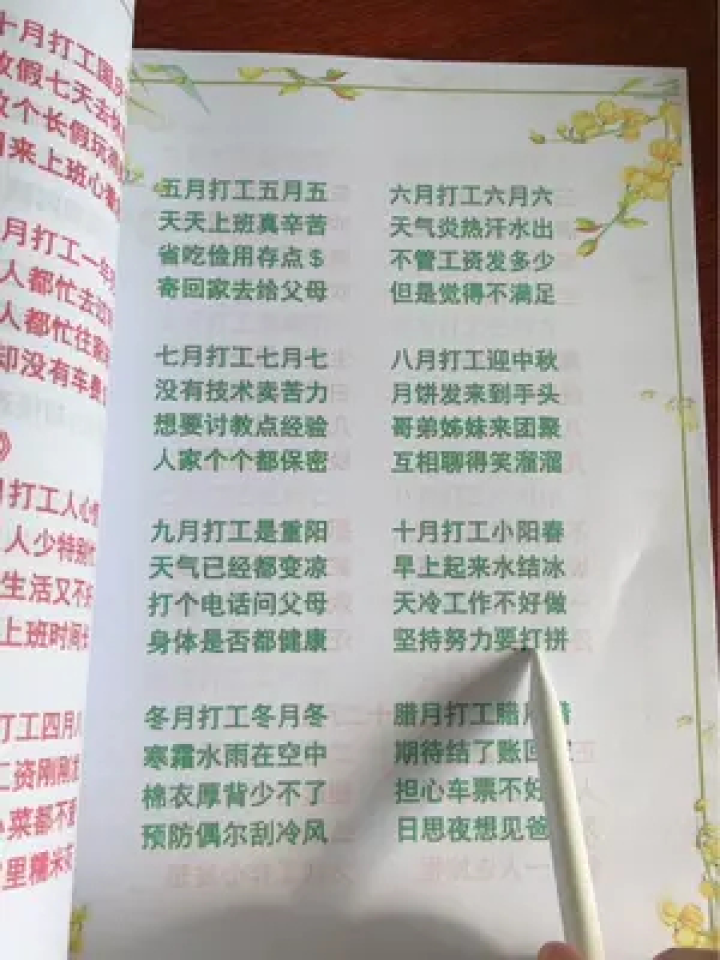 十月打工国
放假七天去
放个长假玩
来上班心
月打工一年
人都忙去
人都忙往家
却没有车费
》
打工人心
人少特别忙
生活又不
上班时间长
打工四月八
工资刚刚发
菜都不
里糯米
五月打工五月五
天天上班真辛苦
省吃俭用存点$
寄回家去给父母
六月打工六月六
天气炎热汗水出
不管工资发多少
但是觉得不满足
七月打工七月七
没有技术卖苦力
想要讨教点经验
人家个个都保密
八月打工迎中秋
月饼发来到手头
哥弟姊妹来团聚
互相聊得笑溜溜
九月打工是重阳
天气已经都变凉
打个电话问父母
身体是否都健康
十月打工小阳春
早上起来水结冰
天冷工作不好做
坚持努力要打拼
冬月打工冬月冬
寒霜水雨在空中
棉衣厚背少不了
预防偶尔刮冷风
腊月打工腊
期待结了账回
担心车票不好
日思夜想见爸